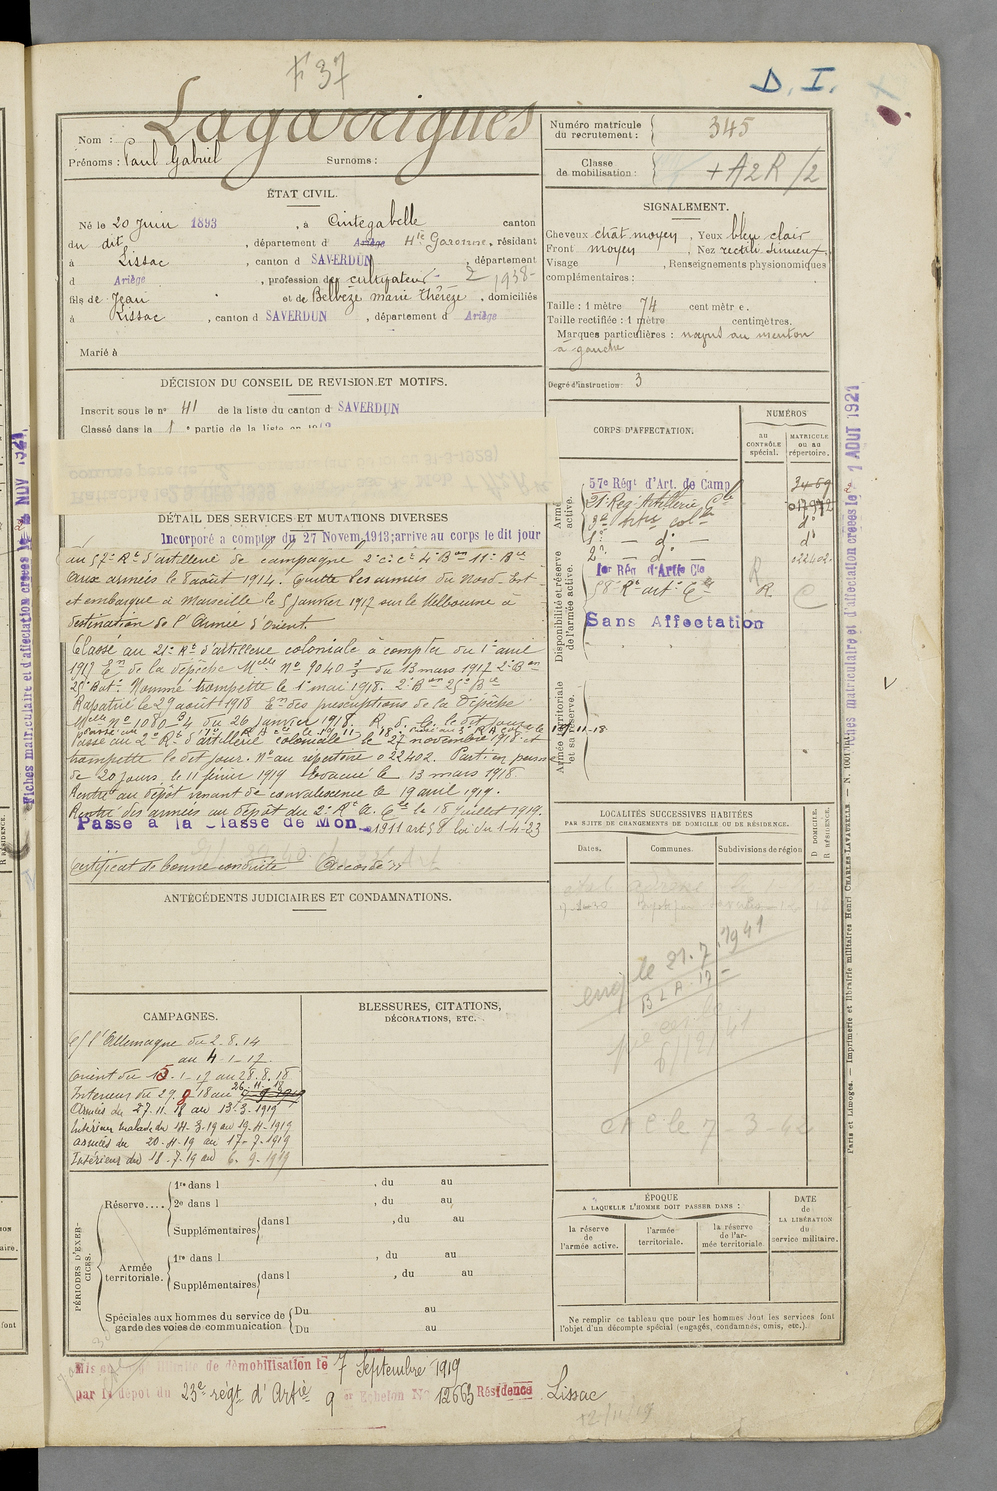 F 37
D. I.
Nom : Lagarrigues
Prénoms : Paul Gabriel Surnoms :
Numéro matricule du recrutement : 345
Classe de mobilisation : + A2R/2
ÉTAT CIVIL.
Né le 20 Juin 1893, à Cintegabelle canton
du dit, département d Ariège Hte Garonne, résidant
à Lissac, canton d SAVERDUN, département
d Ariège, profession de cultivateur - 2 1938-
fils de Jean et de Belbèze marie thérèze, domiciliés
à Lissac, canton d SAVERDUN, département d Ariège
Marié à
SIGNALEMENT.
Cheveux chât moyen, Yeux bleu clair
Front moyen, Nez rectil. sinueux
Visage , Renseignements physionomiques
complémentaires :
Taille : 1 mètre 74 centimètre.
Taille rectifiée : 1 mètre centimètres.
Marques particulières : nœvus au menton
à gauche
Degré d'instruction : 3
DÉCISION DU CONSEIL DE REVISION ET MOTIFS.
Inscrit sous le n° 41 de la liste du canton d SAVERDUN
Classé dans la 1e partie de la liste en 1913
DÉTAIL DES SERVICES ET MUTATIONS DIVERSES
Incorporé a compter du 27 Novem. 1913; arrive au corps le dit jour
au 57e Rt d'artillerie de campagne 2e c. ct 4e Bon 11e Bie
aux armées le 8 août 1914. Quitte les armées du Nord-Est
et embarque à Marseille le 5 janvier 1917 sur le Melbourne à
destination de l'Armée d'Orient.
Classé au 21e Rt d'artillerie coloniale à compter du 1er avril
1917 En de la dépêche Melle No 9040 3/3 du 13 mars 1917 2e Bon
25e Bat. Nommé trompette le 1er mai 1918. 2e Bon 25e Bie
Rapatrié le 29 août 1918 En des prescriptions de la Dépêche
Melle no 1080 3/4 du 26 janvier 1918.
Passé au 2e Rt d'artillerie coloniale le 27 novembre 1918 et
trompette le dit jour. No au répertoire 022402. Parti en perm
de 20 jours. le 11 février 1919 Evacué le 13 mars 1918
Rentré au dépôt venant de convalescence le 19 avril 1919.
Rentré des armées au dépôt du 2e Rt A. Cle le 18 juillet 1919.
Passé à la Classe de Mon. 1911 art 58 loi du 1-4-23
Certificat de bonne conduite Accordé
CORPS D'AFFECTATION.
NUMÉROS
au CONTRÔLE spécial.
MATRICULE ou au répertoire.
Armée active.
57e Régt d'Art. de Camp 3469
21e Reg Artillerie Cle 017972
3e Artie Cole d°
1er — d° — d°
2e — d° — 022402
Disponibilité et réserve de l'armée active.
1er Rég d'Artie Cle R
38e Rt art. Cle R. C
Sans Affectation
Armée territoriale et sa réserve.
LOCALITÉS SUCCESSIVES HABITÉES
PAR SUITE DE CHANGEMENTS DE DOMICILE OU DE RÉSIDENCE.
Dates. Communes. Subdivisions de région D DOMICILE. R RÉSIDENCE.
le 21.7.1941
BLA 17
le 7-3-42
ANTÉCÉDENTS JUDICIAIRES ET CONDAMNATIONS.
CAMPAGNES.
C/ l'Allemagne du 2.8.14
au 4.1.17
Orient du 5.1.17 au 28.8.18
Intérieur du 29.8.18 au 26.11.18
Armées du 27.11.18 au 13.3.1919
Intérieur malade du 14-3-19 au 19-4-1919
armées du 20-4-19 au 17-7-1919
Intérieur du 18-7-19 au 6-9-1919
BLESSURES, CITATIONS,
DÉCORATIONS, ETC.
PÉRIODES D'EXERCICES.
Réserve.... 1re dans l , du au
2e dans l , du au
Supplémentaires dans l , du au
Armée territoriale. 1re dans l , du au
Supplémentaires dans l , du au
Spéciales aux hommes du service de garde des voies de communication Du au
Du au
ÉPOQUE
A LAQUELLE L'HOMME DOIT PASSER DANS :
la réserve de l'armée active.
l'armée territoriale.
la réserve de l'armée territoriale
DATE de LA LIBÉRATION du service militaire.
Ne remplir ce tableau que pour les hommes dont les services font
l'objet d'un décompte spécial (engagés, condamnés, omis, etc.).
Mis en illimité de démobilisation le 7 Septembre 1919
par le dépôt du 23e régt d'Artie 9 er Echelon No 12663 Résidence Lissac
Fiches matriculaire et d'affectation créées le 1 AOUT 1921
Paris et Limoges. — Imprimerie et librairie militaires Henri CHARLES-LAVAUZELLE — N. 1001
Fiches matriculaire et d'affectation créées le NOV 1921